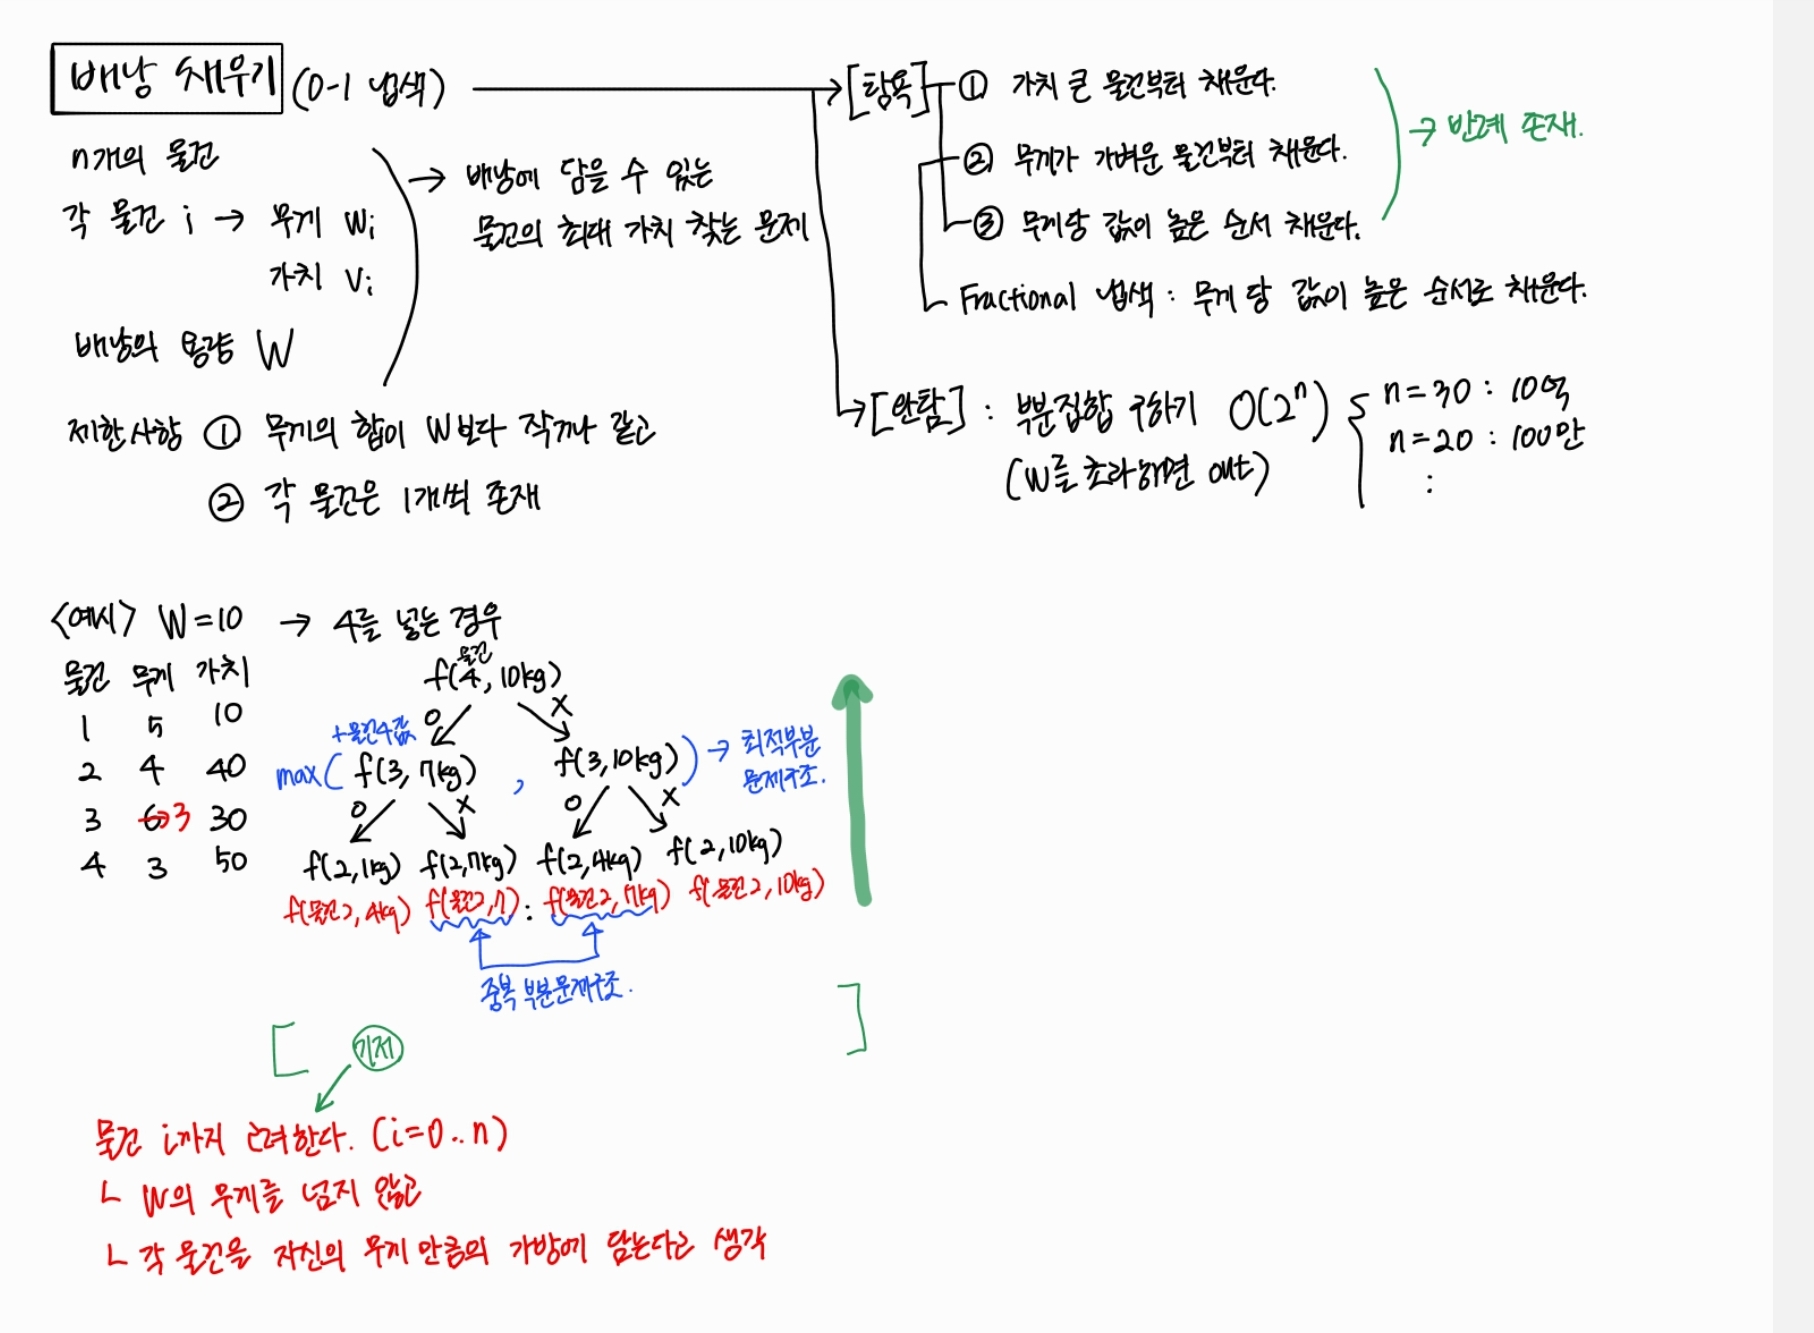 배낭 채우기 (0-1 냅색)
n개의 물건
각 물건 i → 무게 Wi
가치 Vi
배낭의 용량 W
→ 배낭에 담을 수 있는
물건의 최대 가치 찾는 문제
제한사항 ① 무게의 합이 W보다 작거나 같고
② 각 물건은 1개씩 존재
→ [탐욕] ① 가치 큰 물건부터 채운다.
② 무게가 가벼운 물건부터 채운다.
③ 무게당 값이 높은 순서 채운다.
→ 반례 존재.
Fractional 냅색 : 무게 당 값이 높은 순서로 채운다.
→ [완탐] : 부분집합 구하기 O(2ⁿ)
(W를 초과하면 out)
n=30 : 10억
n=20 : 100만
:
<예시> W=10 → 4를 넣는 경우
물건 무게 가치
1 5 10
2 4 40
3 6→3 30
4 3 50
물건
f(4, 10kg)
O X
+물건4값
max( f(3, 7kg) , f(3, 10kg) ) → 최적부분
문제구조.
O X O X
f(2, 1kg) f(2, 7kg) f(2, 4kg) f(2, 10kg)
f(물건2, 4kg) f(물건2, 7) : f(물건2, 7kg) f(물건2, 10kg)
중복 부분문제구조.
[ 기저 ]
물건 i까지 고려한다. (i=0..n)
ㄴ W의 무게를 넘지 않고
ㄴ 각 물건을 자신의 무게 만큼의 가방에 담는다고 생각